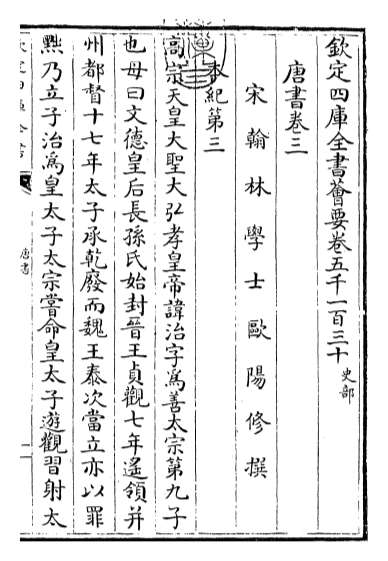 欽定四庫全書薈要卷五千一百三十 史部
唐書卷三
宋翰林學士歐陽修撰
本紀第三
高宗天皇大聖大弘孝皇帝諱治字為善太宗第九子
也母曰文德皇后長孫氏始封晉王貞觀七年遙領并
州都督十七年太子承乾廢而魏王泰次當立亦以罪
黜乃立子治為皇太子太宗嘗命皇太子遊觀習射太
唐書